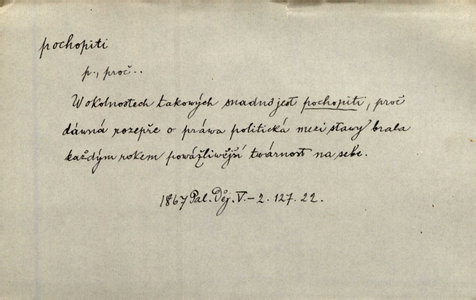 pochopiti
p., proč..
W okolnostech takowých snadno jest pochopiti, proč
dáwná rozepře o práwa politická mezi stawy brala
každým rokem powážliwější twárnost na sebe.
1867 Pal. Děj. V.-2. 127. 22.